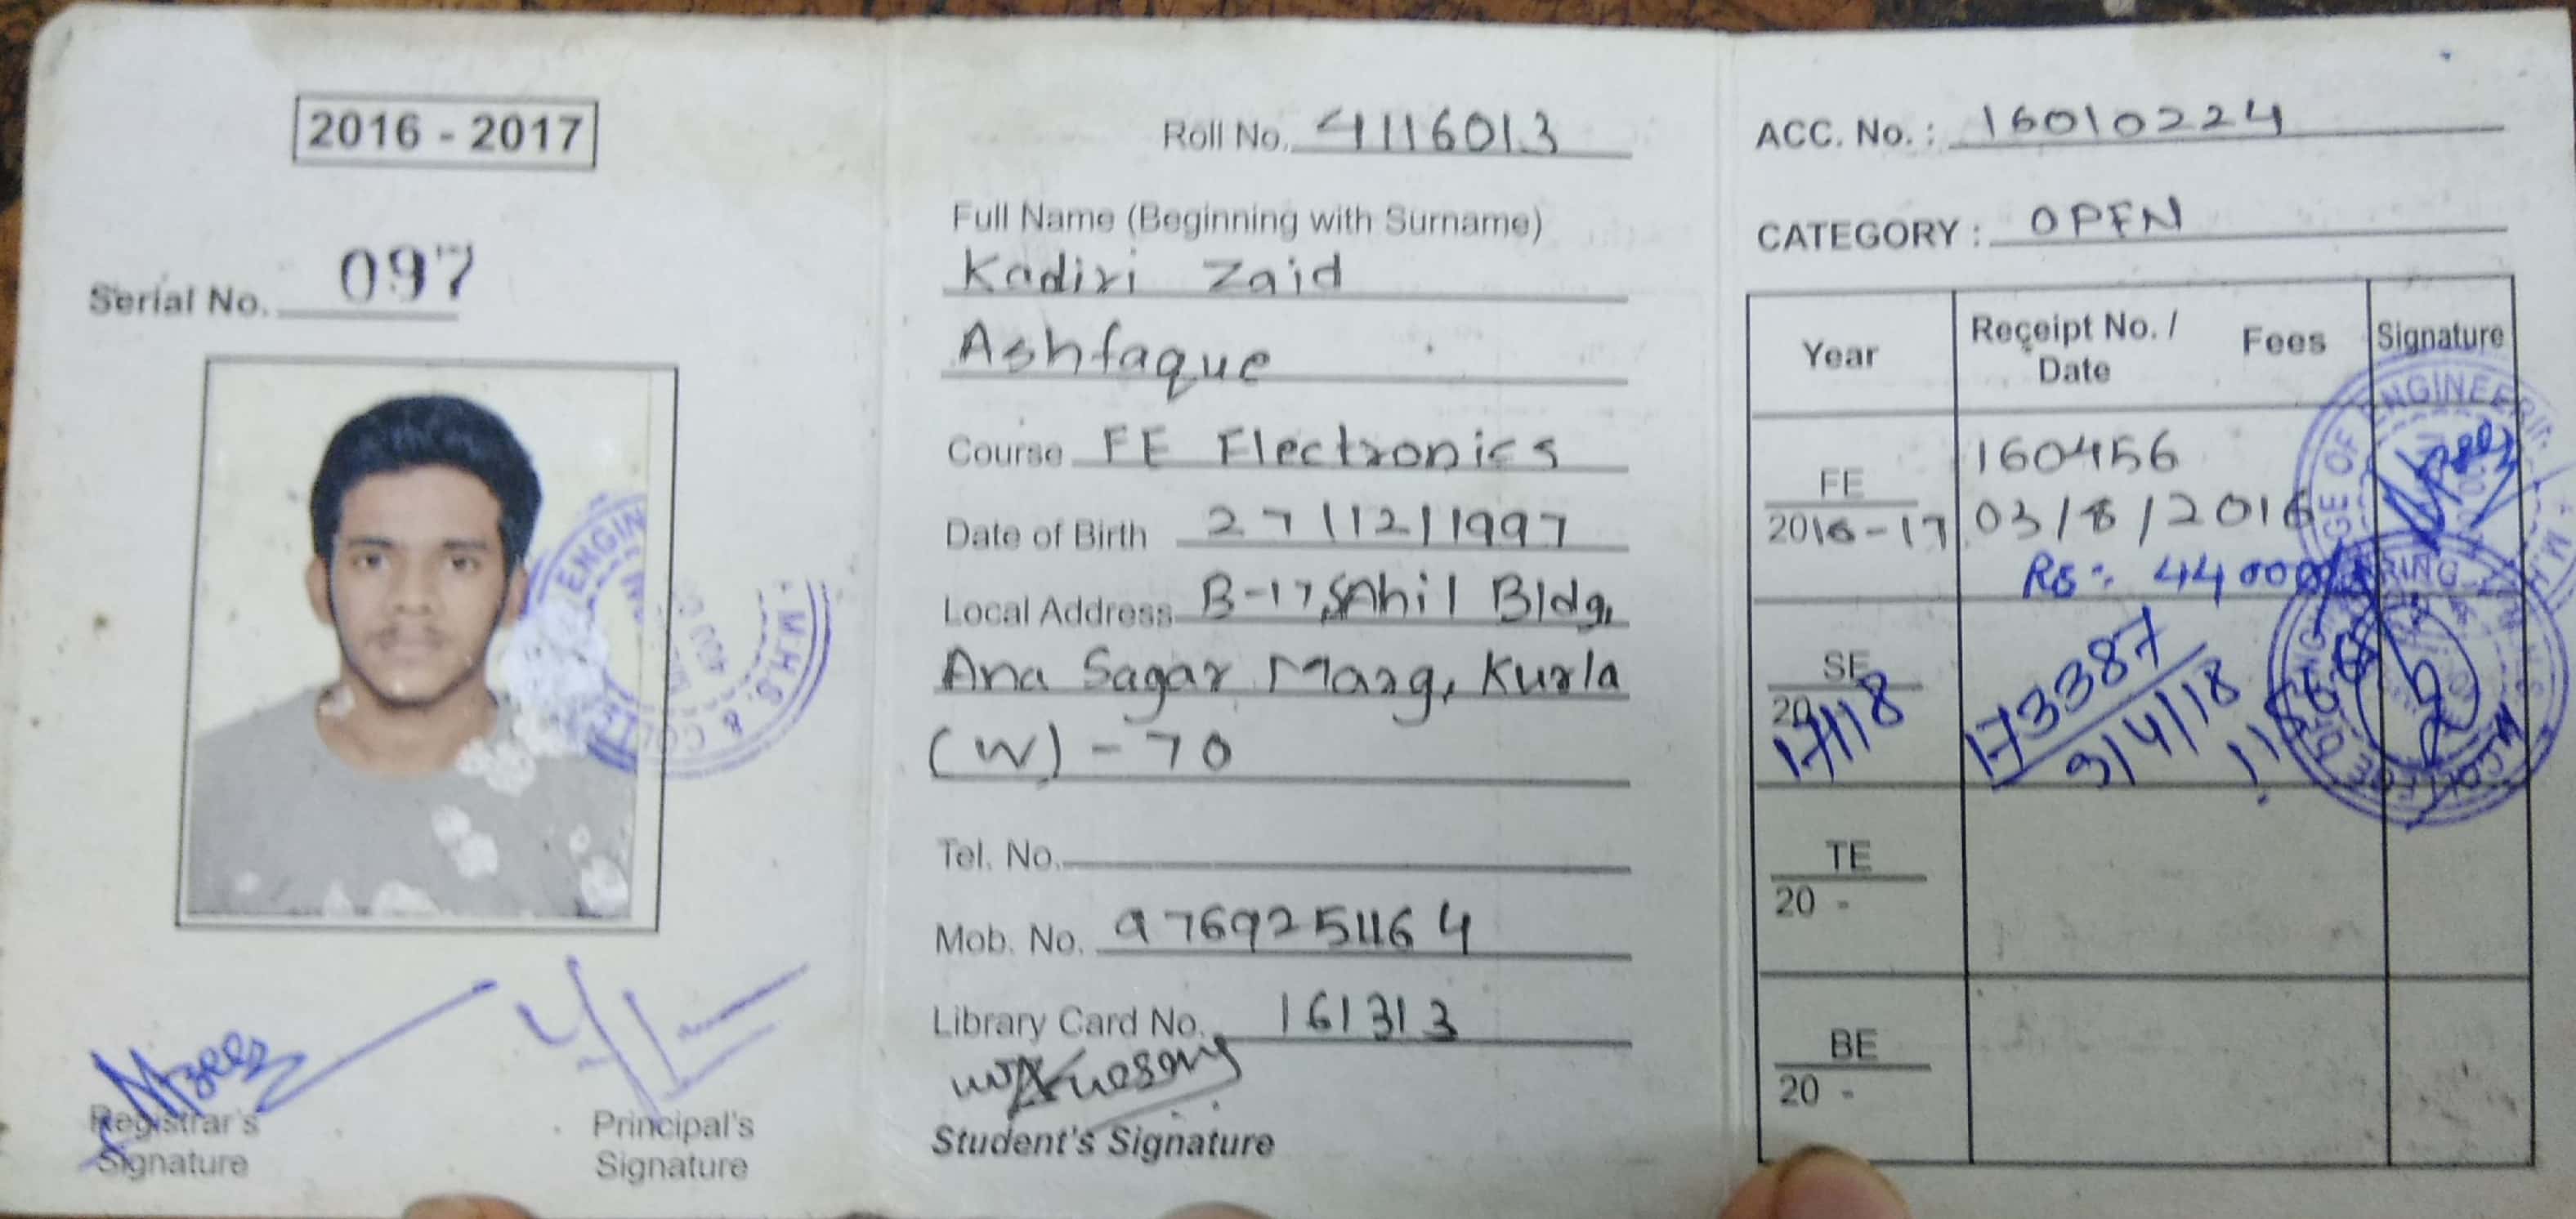 2016 - 2017
Serial No. 097
Registrar's
Signature
Principal's
Signature
Roll No. 4116013
Full Name (Beginning with Surname)
Kadiri Zaid
Ashfaque
Course FE Electronics
Date of Birth 27/12/1997
Local Address B-17, SAhil Bldg,
Ana Sagar Marg, Kurla
(W) - 70
Tel. No.
Mob. No. 9769251164
Library Card No. 161313
Student's Signature
ACC. No. : 16010224
CATEGORY : OPEN
Year Receipt No. / Date Fees Signature
FE
2016-17
160456
03/8/2016
Rs:
SE
20
17/18
173387
9/4/18
TE
20 -
BE
20 -
ENGIN
M.H.S. & COLLE
GE OF ENGINEERIN